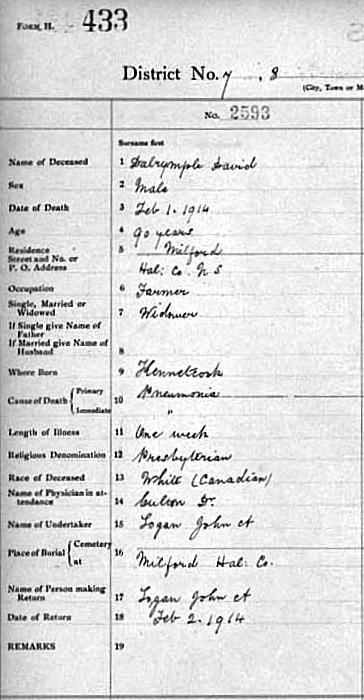 FORM H. 433
District No. 7 . 8
(City, Town or M
No. 2593
Surname first
Name of Deceased 1 Dalrymple David
Sex 2 Male
Date of Death 3 Feb 1. 1914
Age 4 90 years
Residence 5 Milford
Street and No. or
P. O. Address Hal: Co. N S
Occupation 6 Farmer
Single, Married or
Widowed 7 Widower
If Single give Name of
Father
If Married give Name of
Husband 8
Where Born 9 Kennetcook
Cause of Death { Primary 10 Pneumonia
Immediate "
Length of Illness 11 One week
Religious Denomination 12 Presbyterian
Race of Deceased 13 White (Canadian)
Name of Physician in at-
tendance 14 Dr.
Name of Undertaker 15 Logan John
Place of Burial { Cemetery 16
at Milford Hal: Co.
Name of Person making
Return 17 Logan John
Date of Return 18 Feb 2. 1914
REMARKS 19